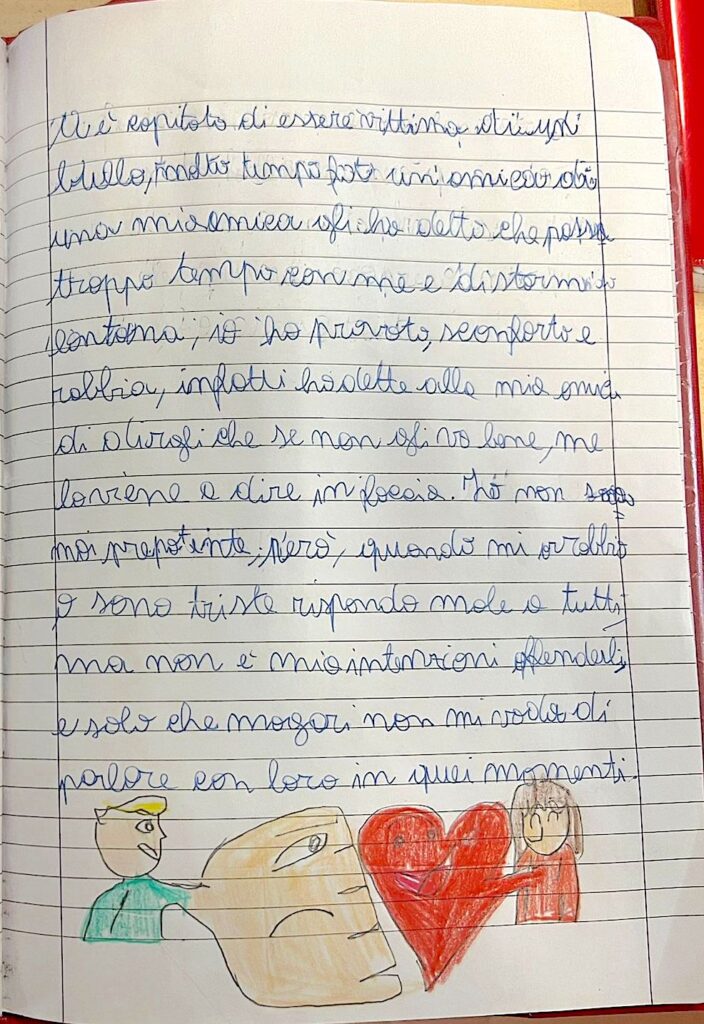 Mi è capitato di essere vittima di un
bullo, molto tempo fa un amico di
una mia amica gli ha detto che passa
troppo tempo con me e di starmi
lontana, io ho provato, sconforto e
rabbia, infatti ho dette alla mia amica
di dirgli che se non gli va bene, me
lo viene a dire in faccia. Io non sono
mai prepotente, però, quando mi arrabbio
o sono triste rispondo male a tutti,
ma non è mia intenzioni offenderli,
e solo che magari non mi va di
parlare con loro in quei momenti.